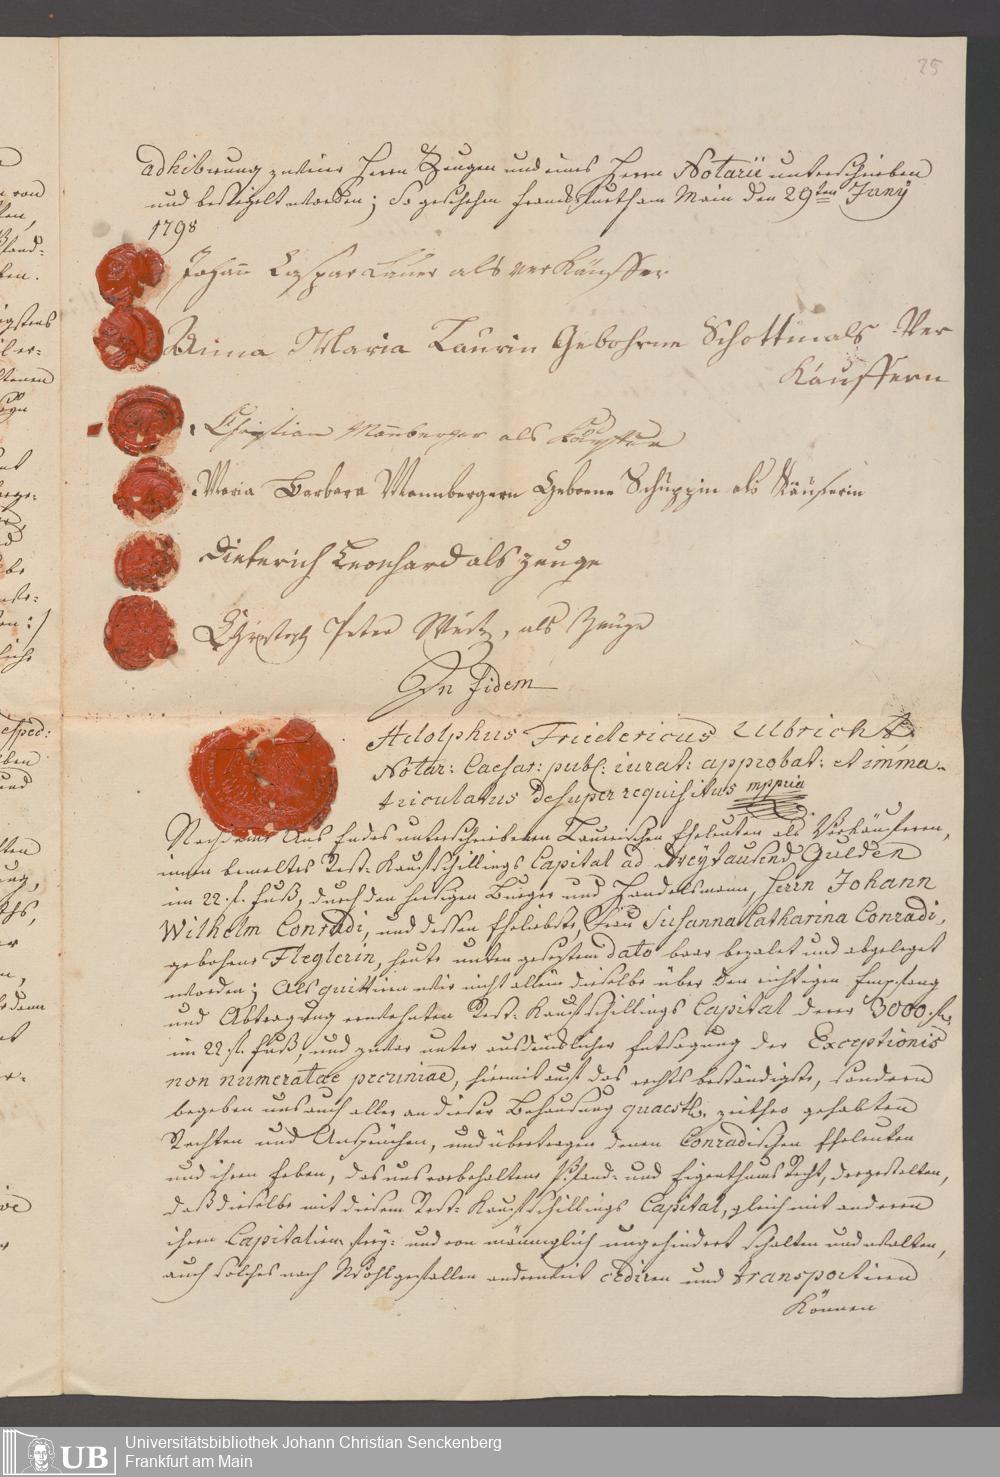 25
adhibirung zweier Herrn Zeugen und eines Herrn Notarii unterschrieben
und besiegelt worden; So geschehen Franckfurth am Main den 29ten Juny
1798
Johann Caspar Lauer als verkäuffer
Anna Maria Laurin Gebohrne Schottin als Ver
käuffern
Christian Mannberger als Käuffer
Maria Barbara Mannbergern Geborne Schüppin als Käuferin
Dieterich Leonhard als zeuge
Christoph Peter als Zeuge
In Fidem
Adolphus Friedericus Ulbricht
Notar: Caesar: publ: iurat: approbat: et imma-
triculatus desuper requisitus mppria
Nachdeme Uns Endes unterschriebenen Lauerischen Eheleuten als Verkäuferen,
innen bemeltes Rest-Kaufschillings Capital ad Dreytausend Gulden
im 22. f. Fuß, durch den hiesigen Burger und Handelsmann, Herrn Johann
Wilhelm Conradi, und dessen Eheliebste, Frau Susanna Catharina Conradi,
gebohrne Fleglerin, heute unten gesezten dato baar bezalet und abgeleget
worden; Als quittiren wir nicht allein dieselbe über den richtigen Empfang
und Abtragung erwehnten Rest-Kaufschillings Capital derer 3000. f.
im 22. f. Fuß, und zwar unter ausdrücklicher Entsagung der Exceptionis
non numeratae pecuniae, hiermit auf das rechts beständigste, sondern
begeben uns auch aller an dieser Behausung quaest: zeithero gehabten
Rechten und Ansprüchen, und übertragen denen Conradischen Eheleuten
und ihren Erben, das uns vorbehaltene Pfand- und Eigenthums Recht, dergestalten,
daß dieselbe mit diesem Rest-Kaufschillings Capital, gleich mit anderen
ihren Capitalien frey- und von männiglich ungehindert schalten und walten,
auch solches nach Wohlgefallen anderweit cediren und transportiren
können
UB
Universitätsbibliothek Johann Christian Senckenberg
Frankfurt am Main